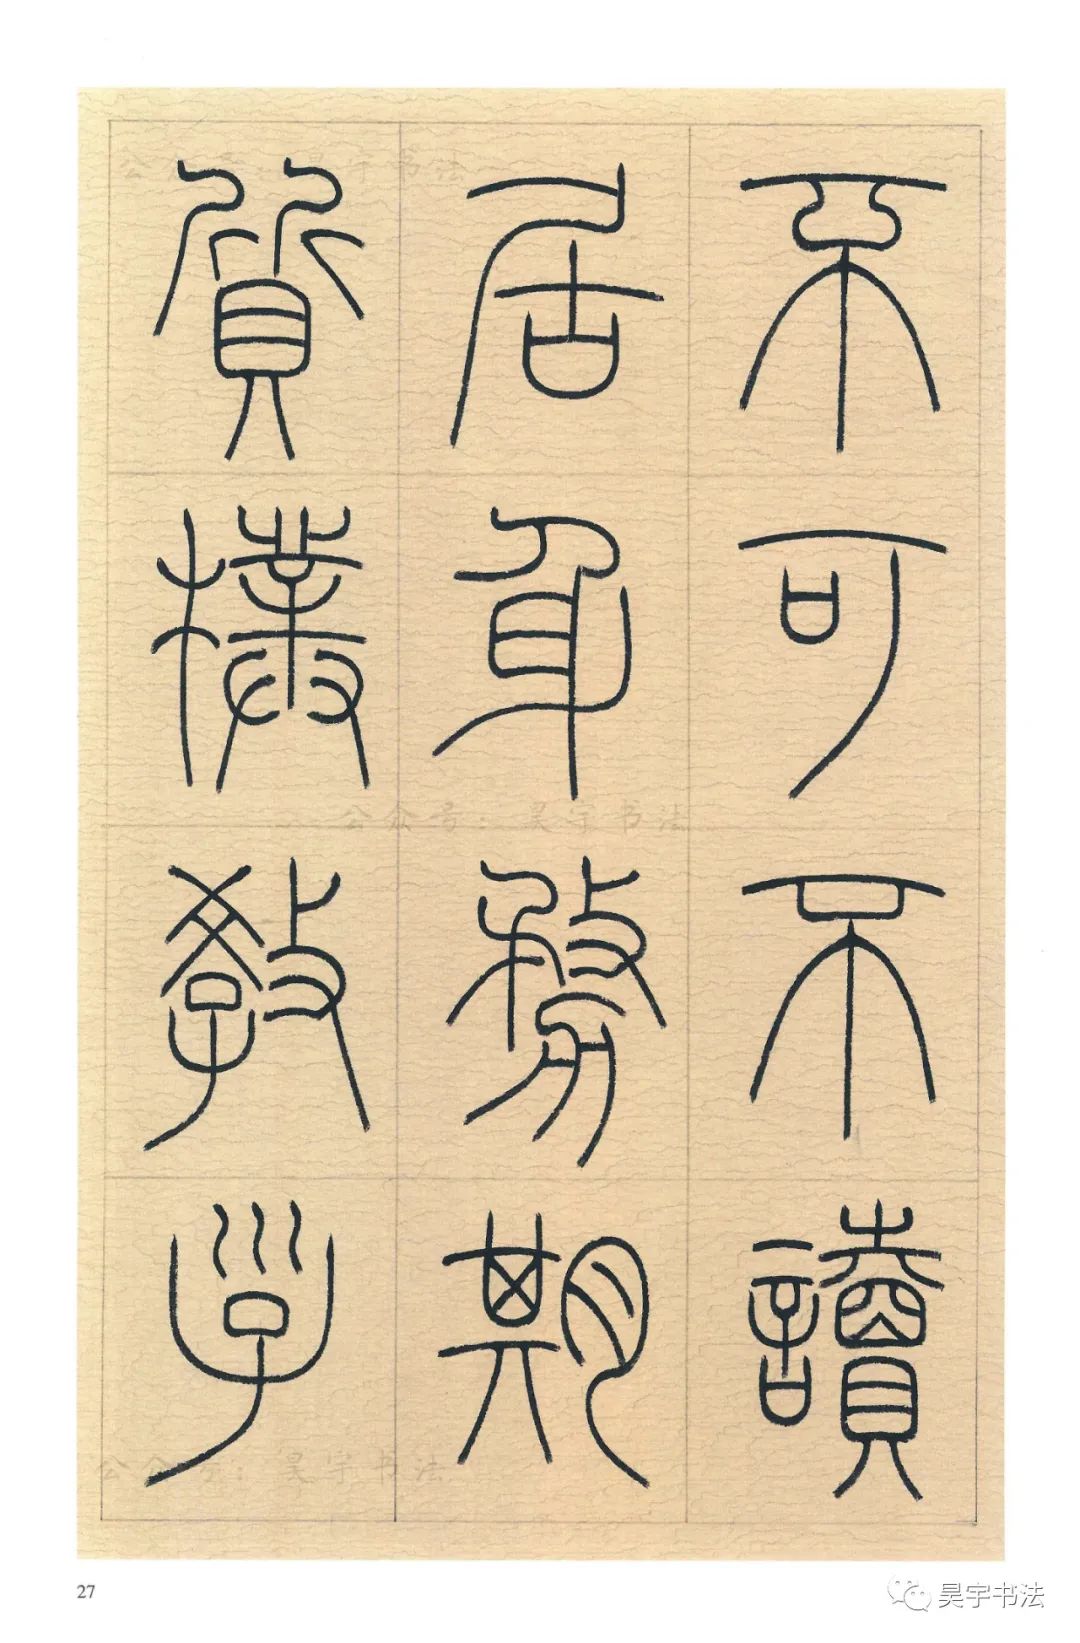 不可不讀
居身務期
質樸教子
公众号：昊宇书法
公众号：昊宇书法
公众号：昊宇书法
27
昊宇书法